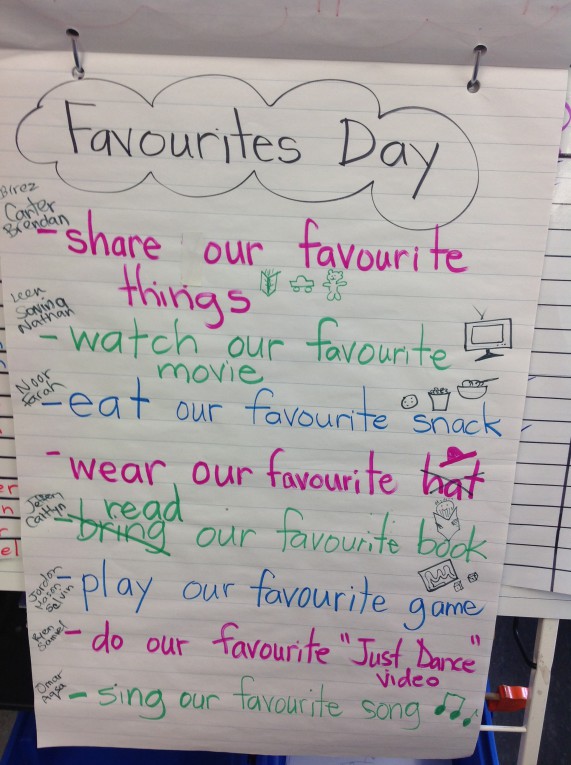 Favourites Day
Carter
Brendan
- share our favourite
things
Leen
Nathan
- watch our favourite
movie
Noor
Farah
- eat our favourite snack
- wear our favourite hat
read
Caitlyn
- bring our favourite book
Jordan
Mason
Selvin
- play our favourite game
Samuel
- do our favourite "Just Dance"
video
Omar
Aqsa
- sing our favourite song